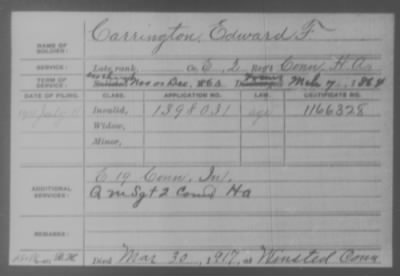 NAME OF SOLDIER: Carrington, Edward F.
SERVICE: Late rank, Co. E, 2 Reg't Conn. H. A.
TERM OF SERVICE: Nov or Dec, 1863, Mch 7, 1864
DATE OF FILING. CLASS. APPLICATION NO. LAW. CERTIFICATE NO.
July Invalid, 1398031 age 1166328
Widow,
Minor,
ADDITIONAL SERVICES: E 19 Conn. Inf.
Q M Sgt 2 Conn H A
REMARKS:
Died Mar 30, 1917, at Winsted Conn